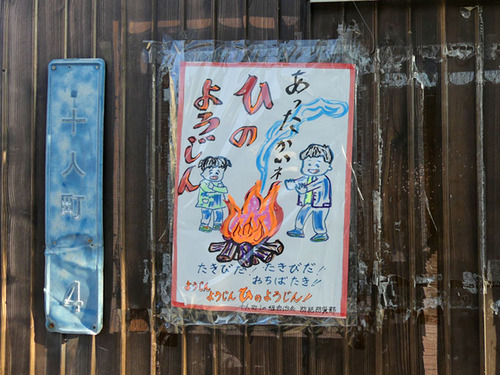 十人町
4
ひの
ようじん
あったかいネ
たきびだ!! たきびだ!
おちばたき!!
ようじん
ようじん ひのようじん!